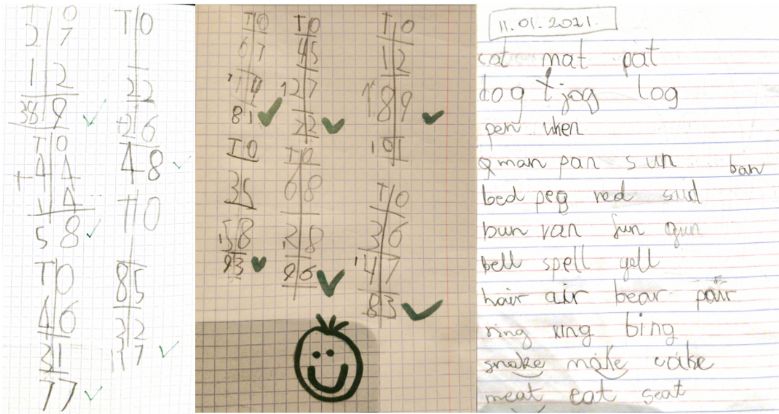 T O
2 7
1 2
T O
4 4
+ 1 4
5 8
T O
4 6
3 1
7 7
T O
2 2
+ 2 6
4 8
T O
8 5
3 2
1 1 7
T O
6 7
1 4
8 1
T O
3 5
5 8
9 3
T O
4 5
1 2 7
7 2
T O
6 8
2 8
9 6
T O
1 2
1 8 9
1 0 1
T O
3 6
1 4 7
8 3
11.01.2021.
cat mat pat
dog jog log
pen when
man pan sun ban
bed peg red
bun van fun gun
bell spell yell
hair air bear pair
ring king bing
snake make cake
meat eat seat